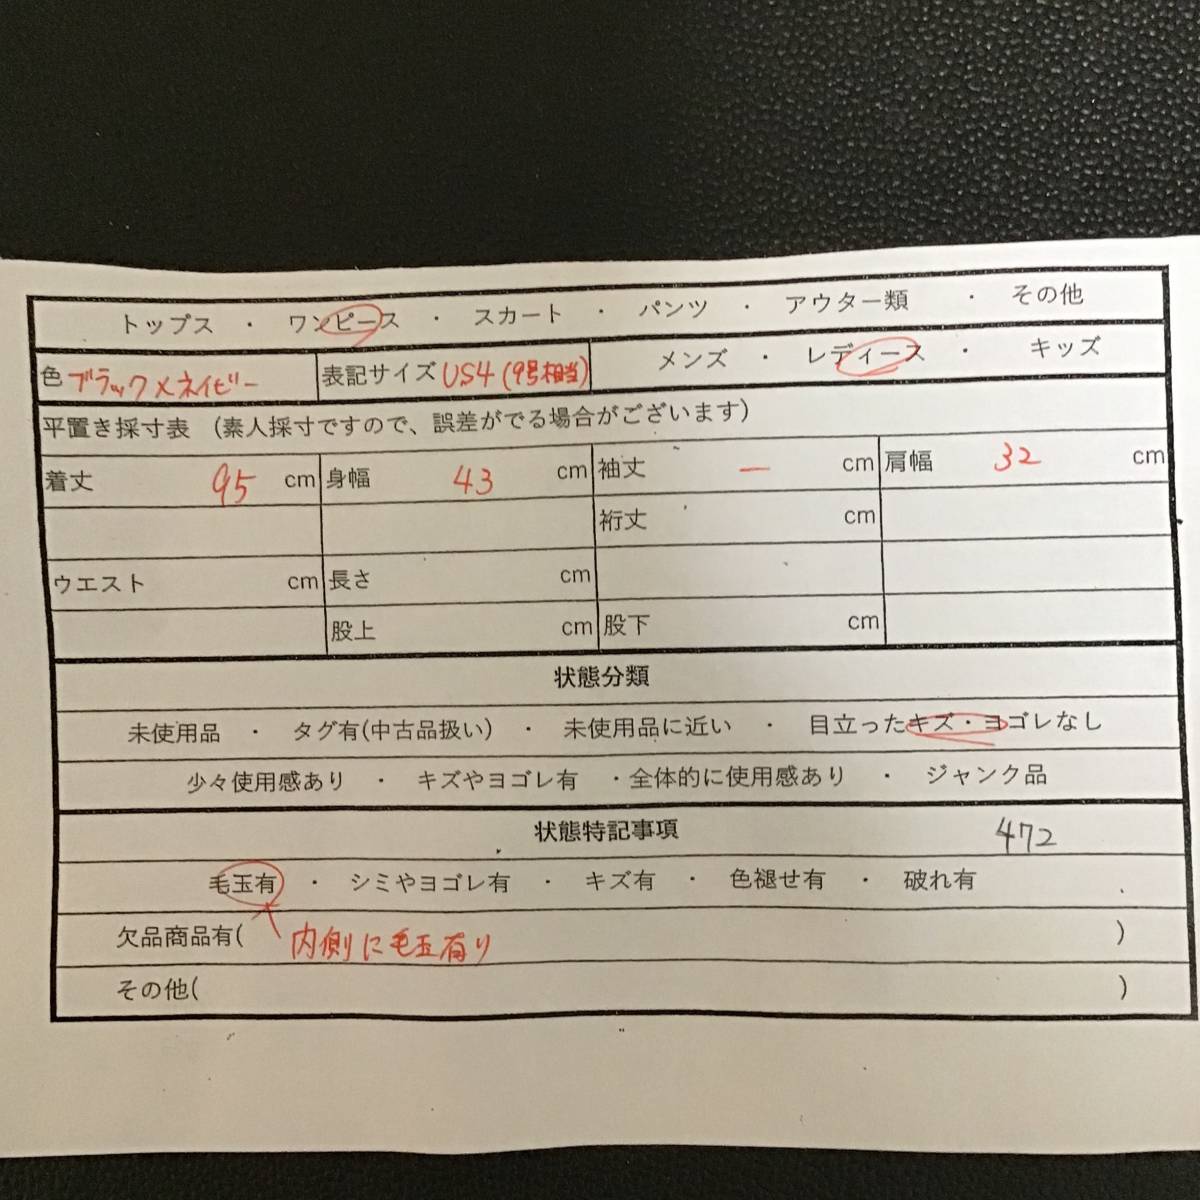 トップス ・ ワンピース ・ スカート ・ パンツ ・ アウター類 ・ その他
色 ブラック×ネイビー 表記サイズ US4 (9号相当) メンズ ・ レディース ・ キッズ
平置き採寸表 (素人採寸ですので、誤差がでる場合がございます)
着丈 95 cm 身幅 43 cm 袖丈 ー cm 肩幅 32 cm
裄丈 cm
ウエスト cm 長さ cm
股上 cm 股下 cm
状態分類
未使用品 ・ タグ有(中古品扱い) ・ 未使用品に近い ・ 目立ったキズ・ヨゴレなし
少々使用感あり ・ キズやヨゴレ有 ・全体的に使用感あり ・ ジャンク品
状態特記事項 472
毛玉有 ・ シミやヨゴレ有 ・ キズ有 ・ 色褪せ有 ・ 破れ有
欠品商品有( 内側に毛玉有り )
その他( )